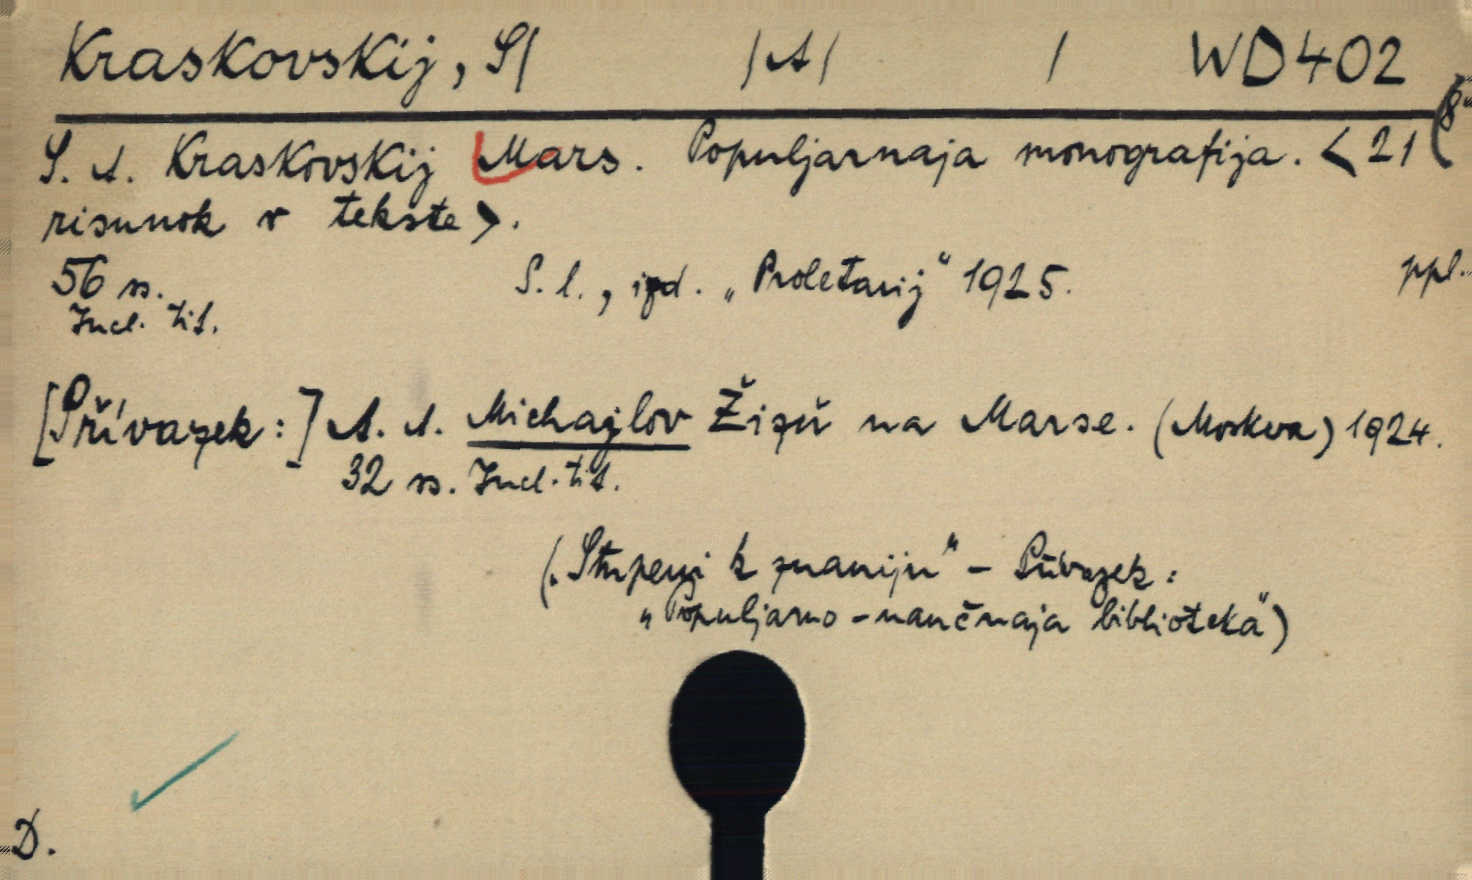 Kraskovskij, S/ /A/ / WD402
(8°
S. A. Kraskovskij Mars. Populjarnaja monografija. <21
risunok v tekste>.
56 ss. S. l., izd. „Proletarij“ 1925. ppl.
Incl. tit.
[Přívazek:] A. A. Michajlov Žizň na Marse. (Moskva) 1924.
32 ss. Incl. tit.
(„Stupeni k znaniju“ – Přívazek:
„Populjarno-naučnaja biblioteka“)
D.